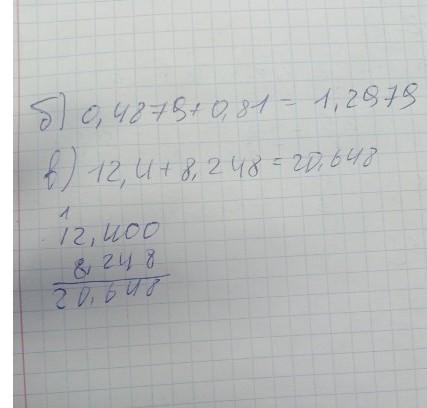 б) 0,4879+0,81 = 1,2979
в) 12,4+8,248=20,648
1
12,400
8,248
20,648